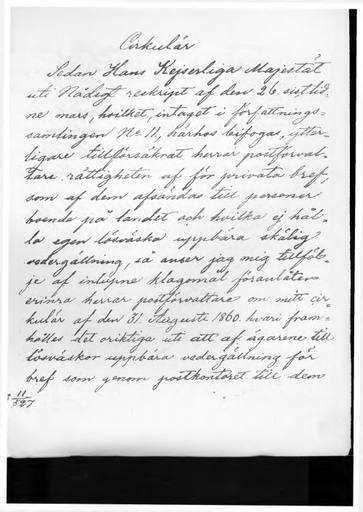 Cirkulär
Sedan Hans Kejserliga Majestät
uti Nådigt reskript af den 26 sistlid-
ne mars, hvilket, intaget i författnings-
samlingen No 11, härhos bifogas, ytter-
ligare tillförsäkrat herrar postförval-
tare rättigheten af för privata bref,
som af dem afsändas till personer
boende på landet och hvilka ej hål-
la egen lösväska uppbära skälig
vedergällning, så anser jag mig tillföl-
je af inlupne klagomål föranlåten
erinra herrar postförvaltare om mitt cir-
kulär af den 31 Augusti 1860. hvari fram-
hölles det oriktiga uti att af ägarene till
lösväskor uppbära vedergällning för
bref som genom postkontoret till dem
11
327